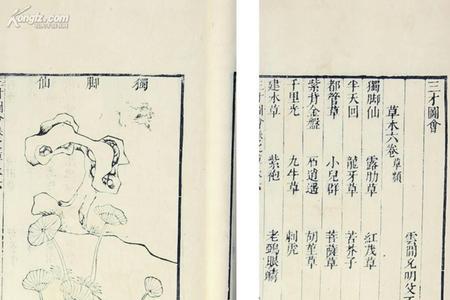 三才圖會
雲間允明父
草木六卷 草類
獨脚仙 露筋草 紅茂草
半天回 龍牙草 苦芥子
都管草 小兒群 菩薩草
紫背金盤 石逍遥 胡堇草
千里光 九牛草 刺虎
建水草 紫袍 老鴉眼睛
獨脚仙
Kongfz.com